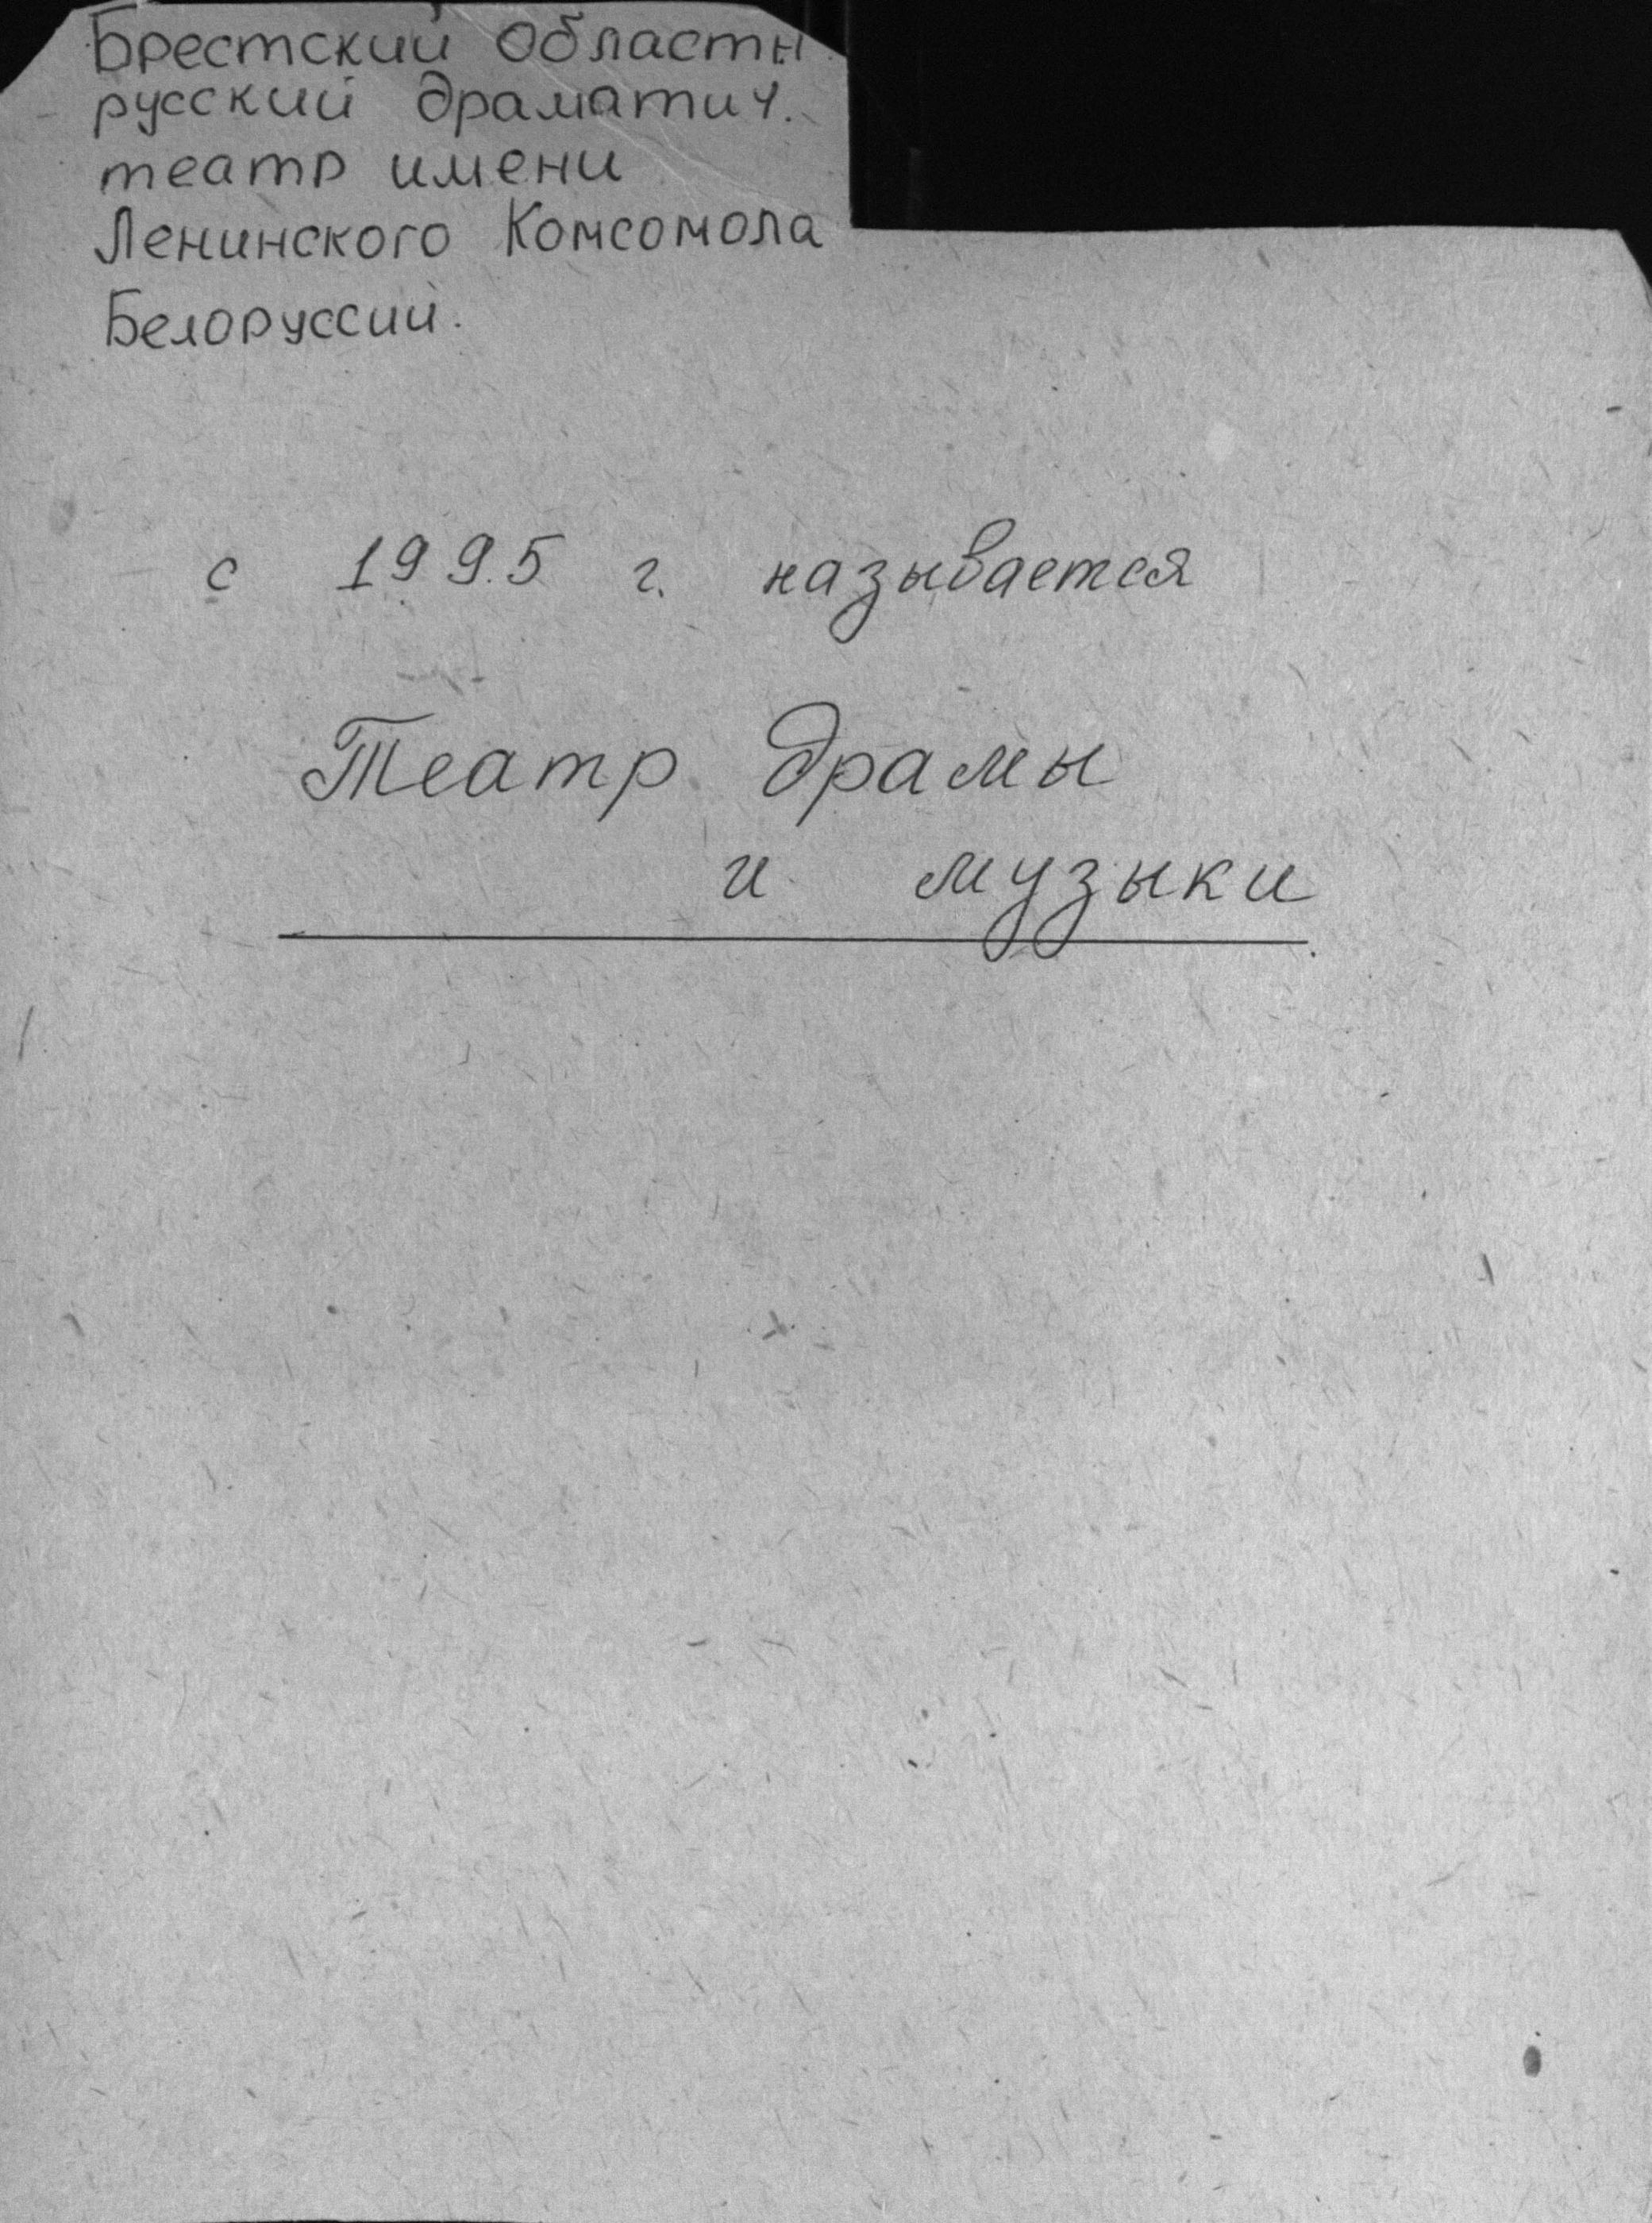 Брестский областн.
русский драматич.
театр имени
Ленинского Комсомола
Белоруссии.
с 1995 г. называется
Театр драмы
и музыки.